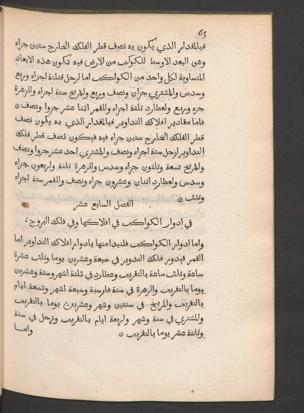 65
فبالمقدار الذي يكون به نصف قطر الفلك الخارج ستين جزاء
وهي البعد الاوسط للكوكب من الارض فيه تكون هذه الابعاد
المتساوية لكل واحد من الكواكب اما لزحل فثلثة اجزاء وربع
وسدس والمشتري جزان ونصف وربع والمريخ ستة اجزاء وللزهرة
جزء وربع ولعطارد ثلثة اجزاء وللقمر اثنا عشر جزوا ونصف
فاما مقادير افلاك التداوير فبالمقدار الذي به يكون نصف
قطر الفلك الخارج ستين جزاء فيه فيكون نصف قطر فلك
التداوير لزحل ستة اجزاء ونصف والمشتري احد عشر جزوا ونصف
والمريخ تسعة وثلثون جزاء وسدس والزهرة ثلثة واربعون جزاء
وسدس ولعطارد اثنان وعشرون جزاء ونصف وللقمر ستة اجزاء
وثلث
الفصل السابع عشر
في ادوار الكواكب في افلاكها وفي فلك البروج
واما ادوار الكواكب فلنبدا منها بادوار افلاك التداوير اما
القمر فيدور فلك التدوير في سبعة وعشرين يوما وثلث عشرة
ساعة وثلث ساعة بالتقريب وعطارد في ثلثة اشهر وستة وعشرين
يوما بالتقريب والزهرة في سنة فارسية وسبعة اشهر وتسعة ايام
بالتقريب والمريخ في سنتين وشهر وعشرين يوما بالتقريب
والمشتري في سنة وشهر واربعة ايام بالتقريب وزحل في سنة
وثلثة عشر يوما بالتقريب
واما